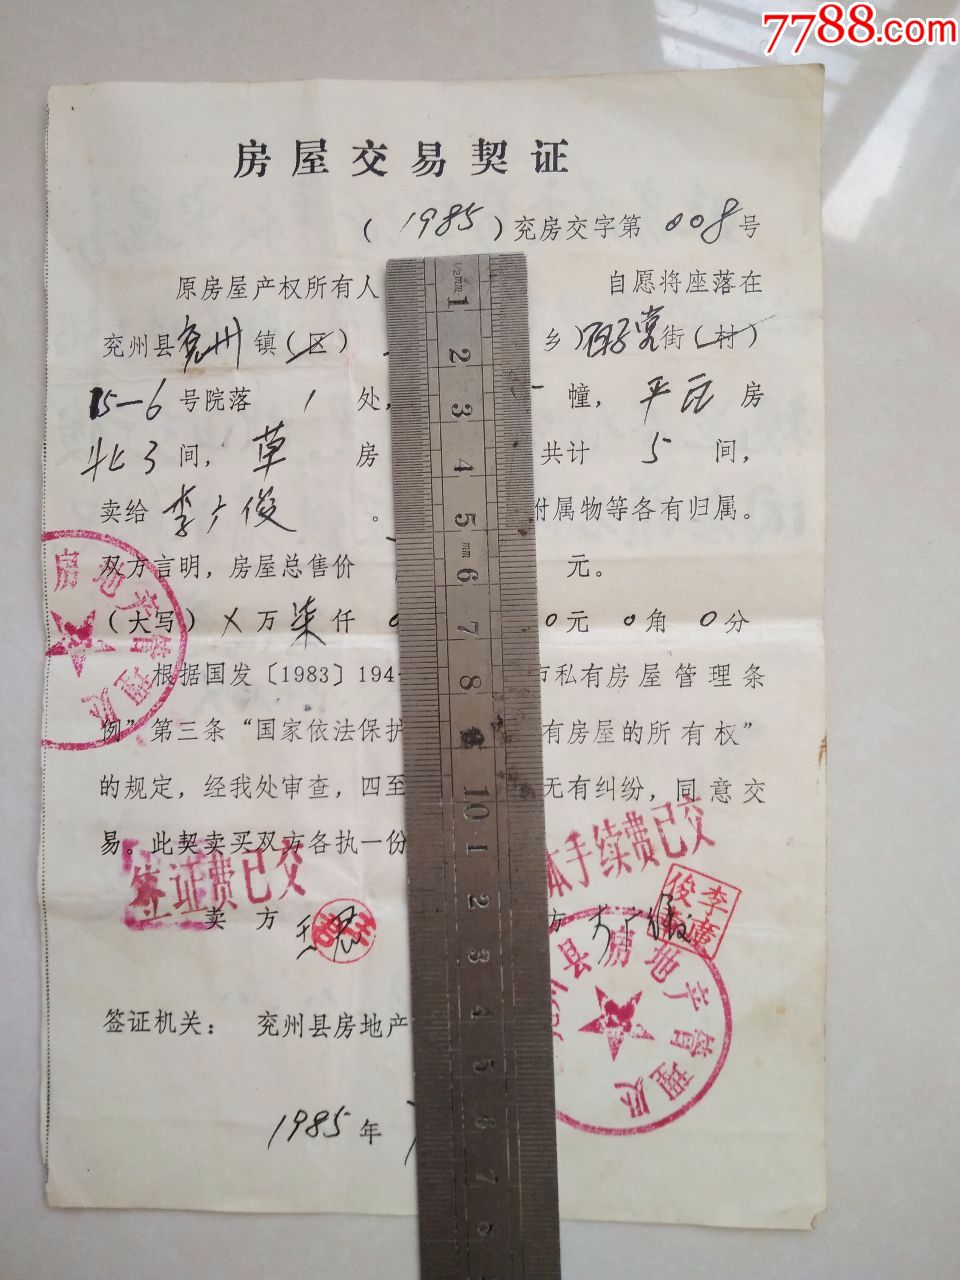 7788.com
房屋交易契证
(1985)兖房交字第008号
原房屋产权所有人 自愿将座落在
兖州县兖州镇(区) 乡) 街(村)
15-6号院落1处, 幢,平 房
北3间,草房 共计5间,
卖给李广俊。 附属物等各有归属。
双方言明,房屋总售价 元。
(大写)X万柒仟 0元0角0分
根据国发〔1983〕194 市私有房屋管理条
例”第三条“国家依法保护 有房屋的所有权”
的规定,经我处审查,四至 无有纠纷,同意交
易。此契卖买双方各执一份
签证费已交 本手续费已交
卖方 王 方 李广俊
俊李廣
签证机关: 兖州县房地产
1985年
房地产管理处
县房地产管理处
1/2mm 1 2 3 4 5 mm 6 7 8 9 10 1 2 3 4 5 6 7 8